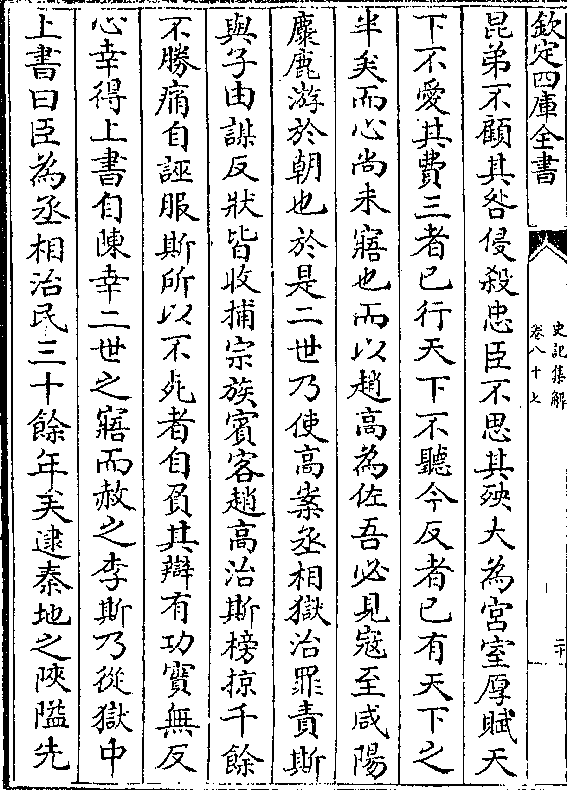 欽定四庫全書
史記集解
卷八十七
二十
昆弟不顧其咎侵殺忠臣不思其殃大為宮室厚賦天
下不愛其費三者已行天下不聽今反者已有天下之
半矣而心尚未寤也而以趙高為佐吾必見寇至咸陽
麋鹿游於朝也於是二世乃使高案丞相獄治罪責斯
與子由謀反狀皆收捕宗族賓客趙高治斯榜掠千餘
不勝痛自誣服斯所以不死者自負其辯有功實無反
心幸得上書自陳幸二世之寤而赦之李斯乃從獄中
上書曰臣為丞相治民三十餘年矣逮秦地之陜隘先